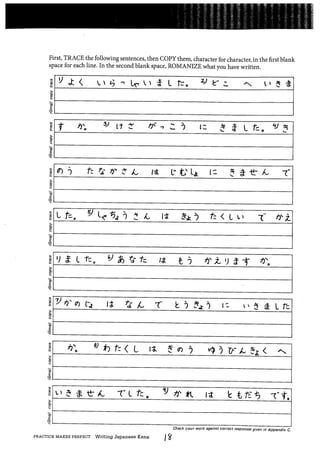 First, TRACE the following sentences, then COPY them, character for character, in the first blank
space for each line. In the second blank space, ROMANIZE what you have written.
trace 1) よく いらっしゃいました。 2) どこ へ いきま
copy
rōmaji
trace すか。 3) けさ がっこう に きました。 4) き
copy
rōmaji
trace のう たなかさん は じむしょ に きませんで
copy
rōmaji
trace した。 5) しゃちょうさん は きょう たくしい で かえ
copy
rōmaji
trace りました。 6) あなた は もう かえりますか。
copy
rōmaji
trace 7) かのじょ は なんで とうきょう に いきました
copy
rōmaji
trace か。 8) わたくし は きのう ゆうびんきょく へ
copy
rōmaji
trace いきませんでした。 9) かれ は ともだち です。
copy
rōmaji
Check your work against correct responses given in Appendix C.
PRACTICE MAKES PERFECT Writing Japanese Kana 18